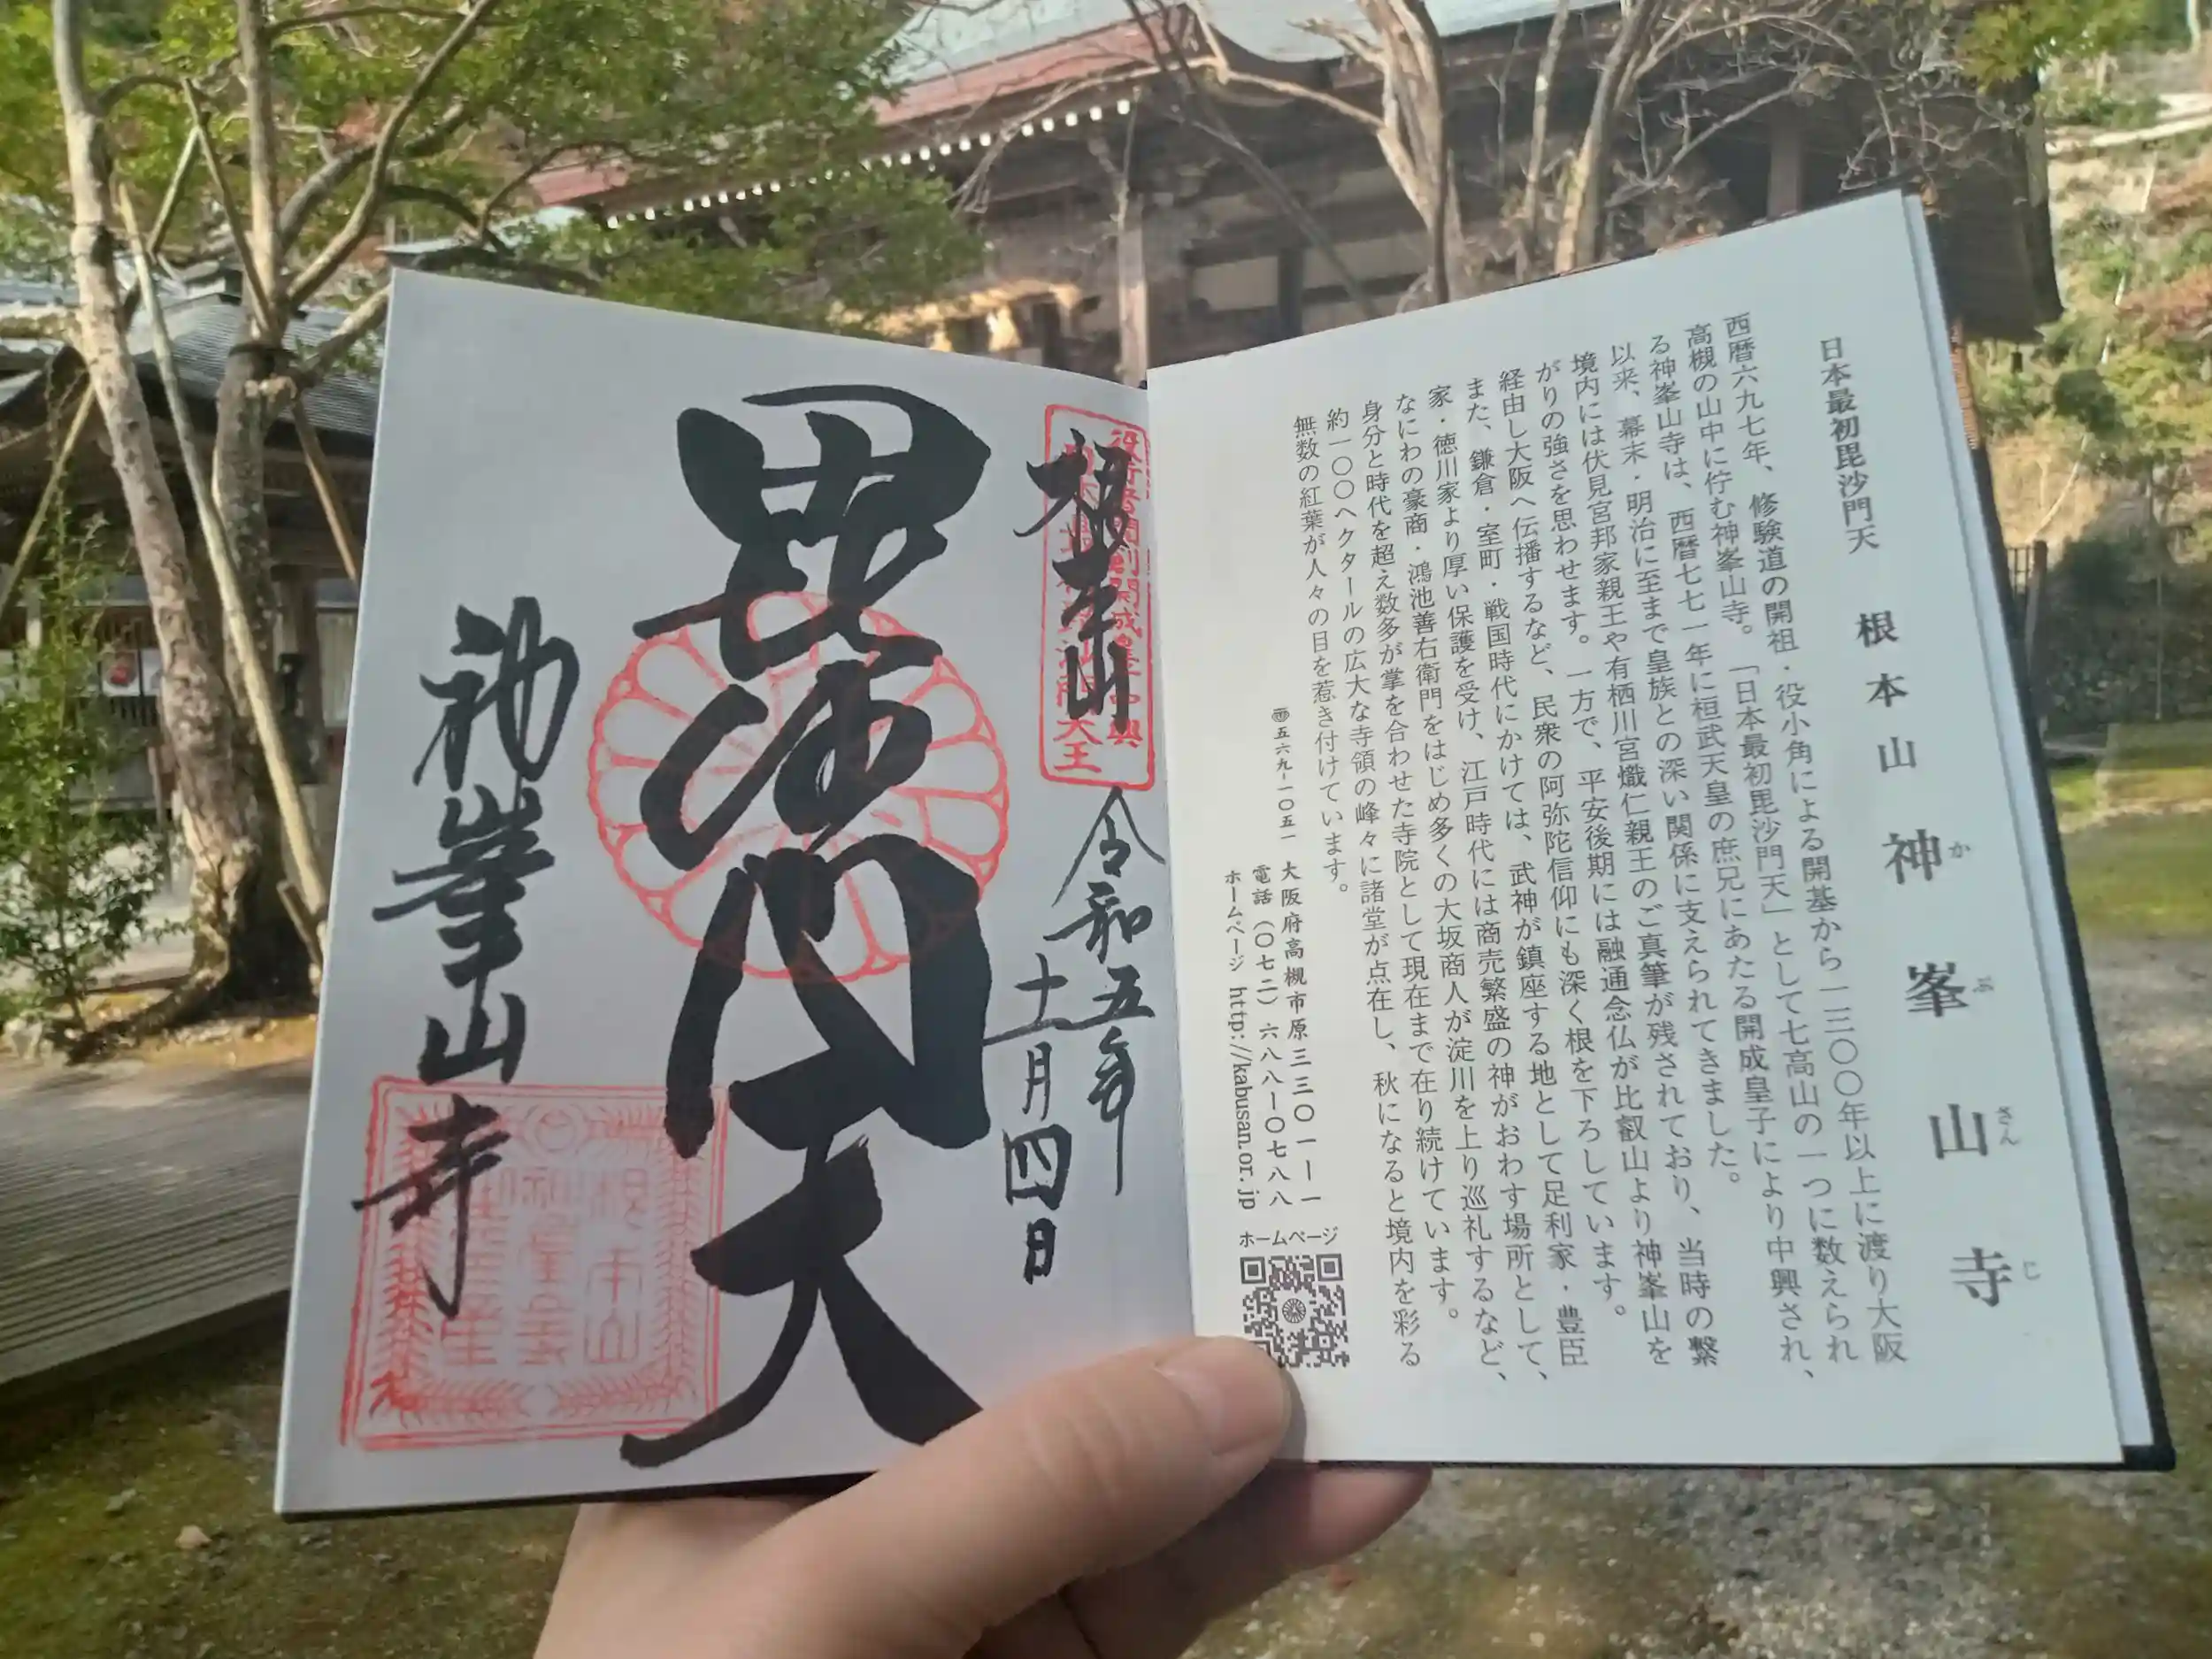 日本最初毘沙門天 根本山 神峯山寺
か ぶ さん じ
西暦六九七年、修験道の開祖・役小角による開基から一三〇〇年以上に渡り大阪
高槻の山中に佇む神峯山寺。「日本最初毘沙門天」として七高山の一つに数えられ
る神峯山寺は、西暦七七一年に桓武天皇の庶兄にあたる開成皇子により中興され、
以来、幕末・明治に至まで皇族との深い関係に支えられてきました。
境内には伏見宮邦家親王や有栖川宮熾仁親王のご真筆が残されており、当時の繋
がりの強さを思わせます。一方で、平安後期には融通念仏が比叡山より神峯山を
経由し大阪へ伝播するなど、民衆の阿弥陀信仰にも深く根を下ろしています。
また、鎌倉・室町・戦国時代にかけては、武神が鎮座する地として足利家・豊臣
家・徳川家より厚い保護を受け、江戸時代には商売繁盛の神がおわす場所として、
なにわの豪商・鴻池善右衛門をはじめ多くの大坂商人が淀川を上り巡礼するなど、
身分と時代を超え数多が掌を合わせた寺院として現在まで在り続けています。
約一〇〇ヘクタールの広大な寺領の峰々に諸堂が点在し、秋になると境内を彩る
無数の紅葉が人々の目を惹き付けています。
〠五六九-一〇五一 大阪府高槻市原三三〇一-一
電話(〇七二)六八八-〇七八八
ホームページ http://kabusan.or.jp
ホームページ
根本山
令和五年
十二月四日
毘沙門天
神峯山寺